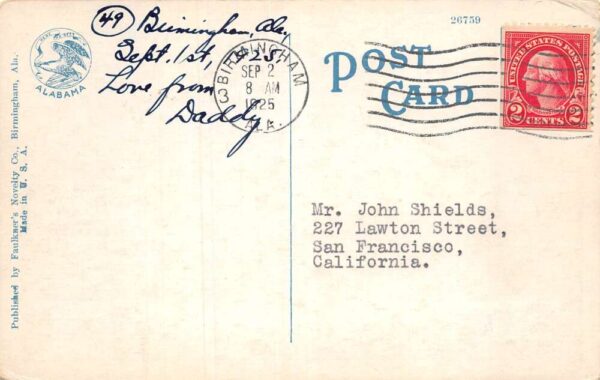 49 Birmingham, Ala,
Sept. 1st, 1925.
Love from
Daddy
BIRMINGHAM
SEP 2
8 AM
1925
ALA.
3
ALABAMA
26759
POST
CARD
UNITED STATES POSTAGE
2 CENTS 2
Mr. John Shields,
227 Lawton Street,
San Francisco,
California.
Published by Faulkner's Novelty Co., Birmingham, Ala.
Made in U. S. A.